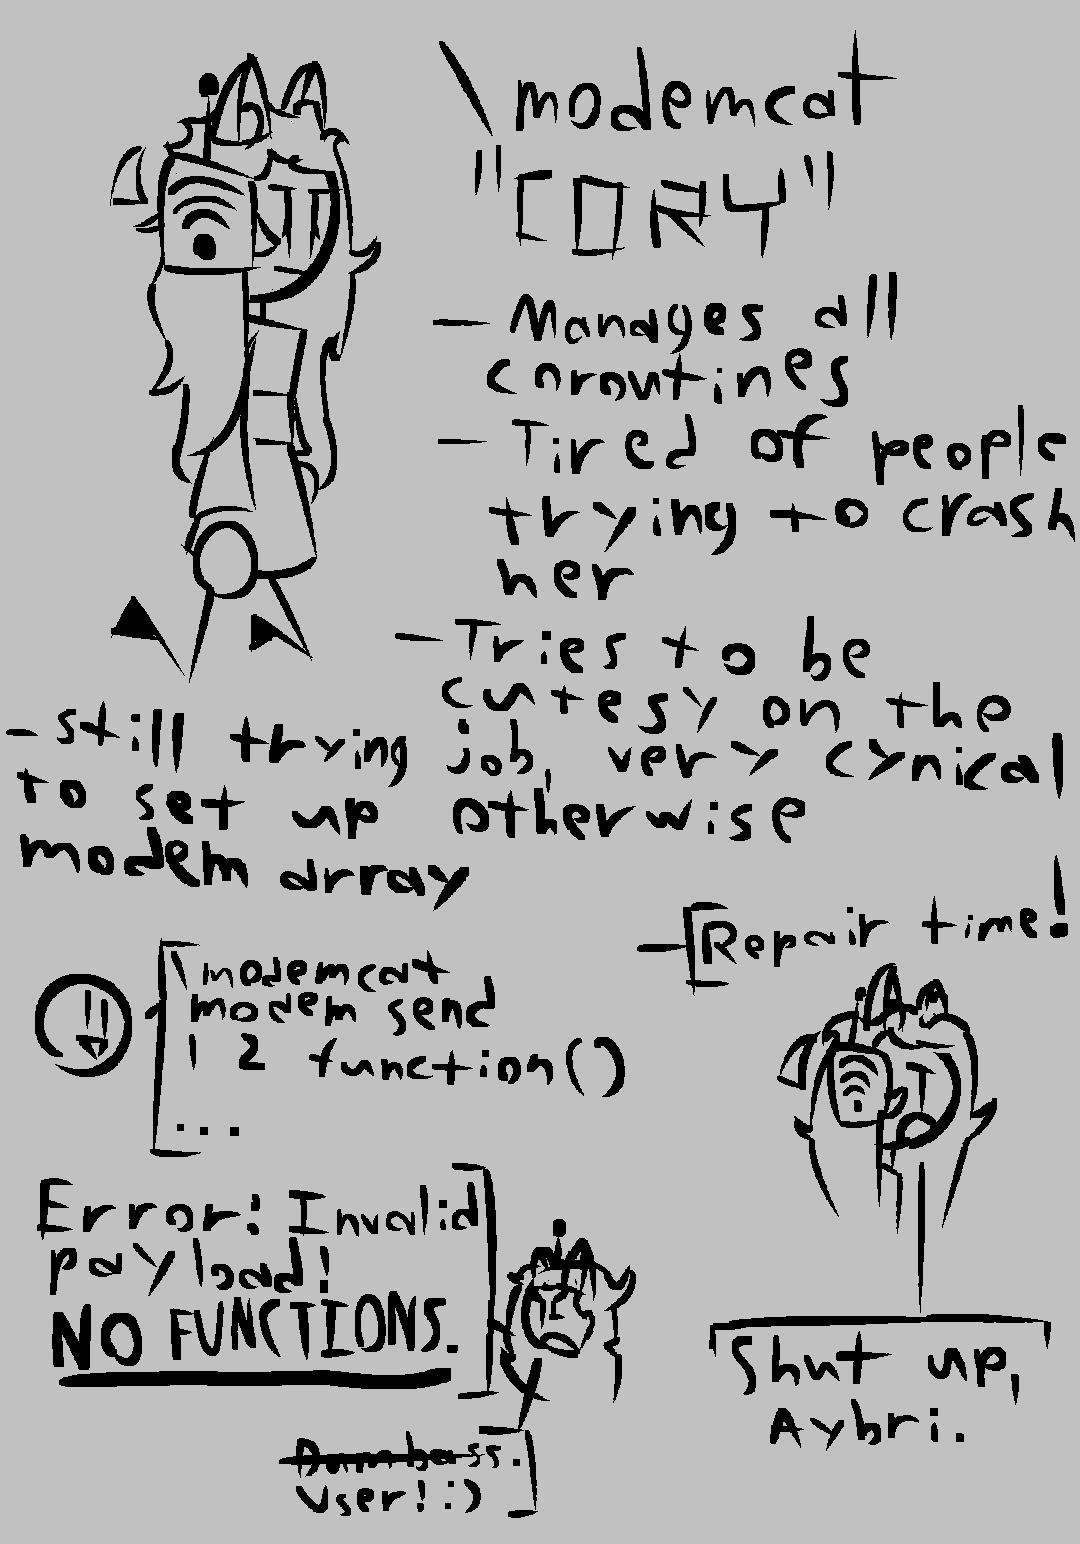 \modemcat
"CORY"
- Manages all
coroutines
- Tired of people
trying to crash
her
- Tries to be
cutesy on the
job, very cynical
otherwise
- still trying
to set up
modem array
\modemcat
modem send
1 2 function()
...
Error! Invalid
payload!
NO FUNCTIONS.
Dumbass.
User! :)
- [Repair time!
Shut up,
Aybri.